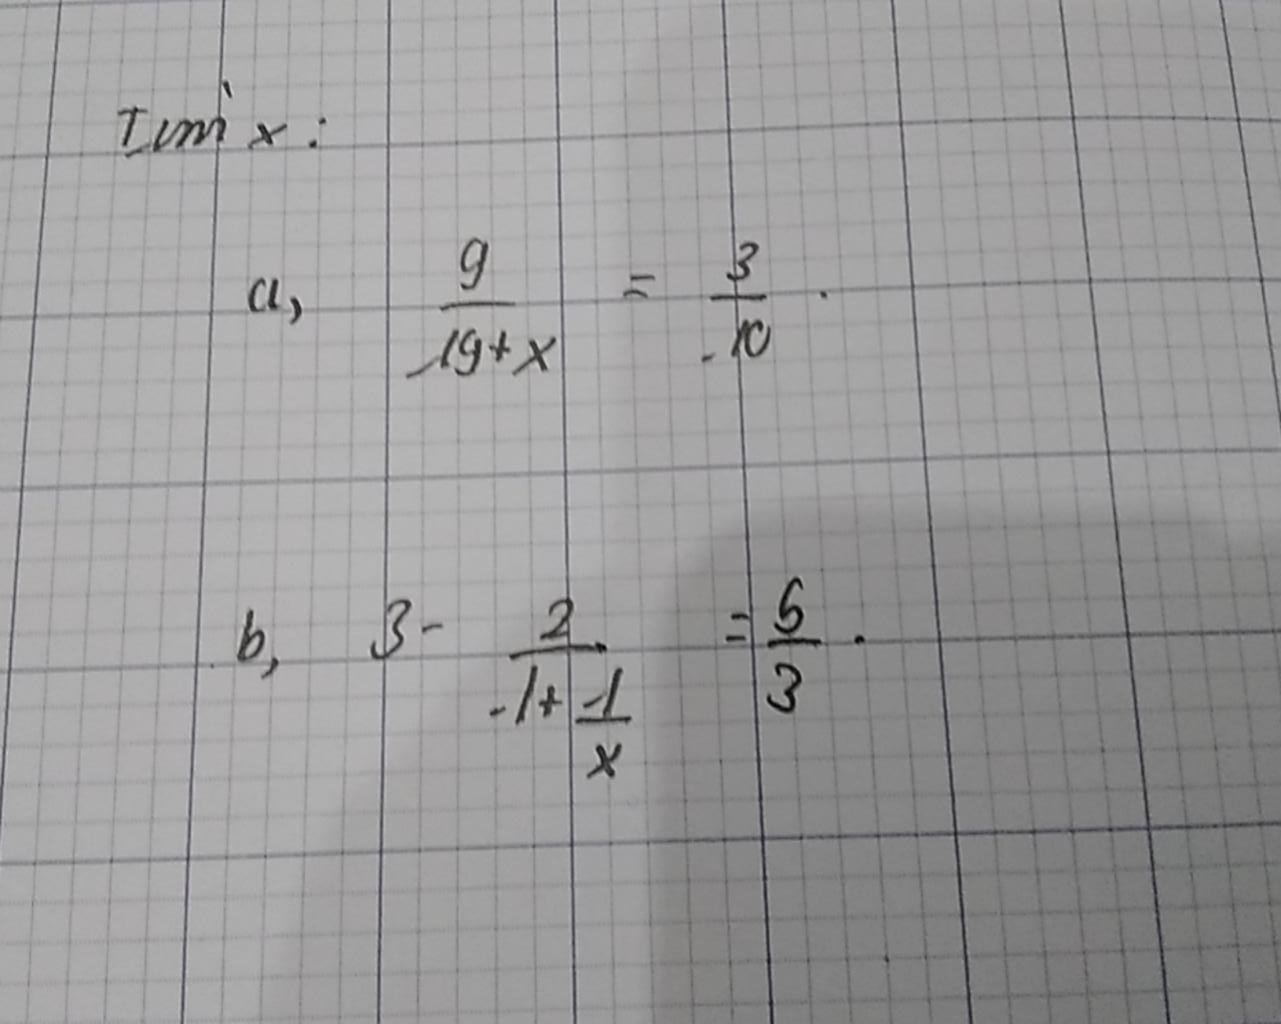 Tìm x:
a, 9/-19+x = 3/-10.
b, 3- 2/-1+-1/x = 5/3.